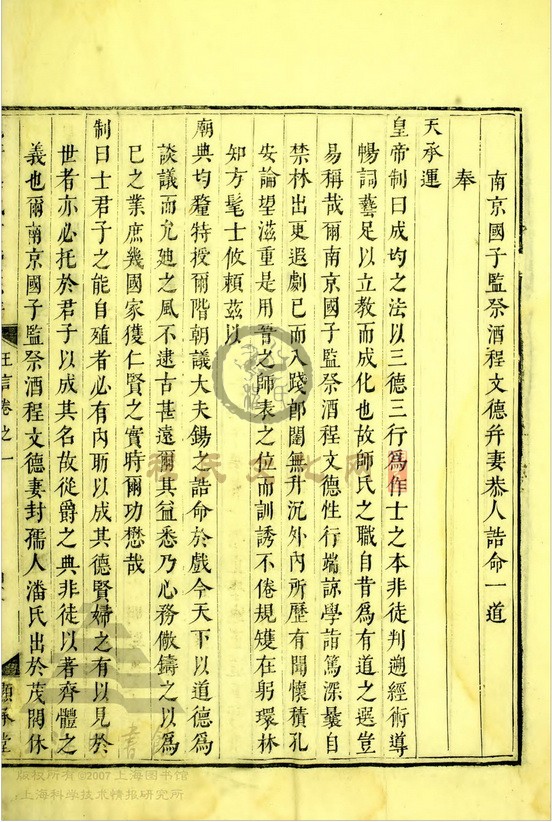 南京國子監祭酒程文德幷妻恭人誥命一道
奉
天承運
皇帝制曰成均之法以三德三行爲作士之本非徒判遡經術導
暢詞藝足以立教而成化也故師氏之職自昔爲有道之選豈
易稱哉爾南京國子監祭酒程文德性行端諒學詣篤深爰自
禁林出更遐劇已而入踐郎闈無升沉外内所歷有聞懷積孔
安論望滋重是用晉之師表之位而訓誘不倦規矱在躬環林
知方髦士攸頼兹以
廟典均釐特授爾階朝議大夫錫之誥命於戲今天下以道德爲
談議而尤廸之風不逮古甚遠爾其益悉乃心務倣鑄之以爲
已之業庶幾國家獲仁賢之實時爾功懋哉
制曰士君子之能自殖者必有内助以成其德賢婦之有以見於
世者亦必托於君子以成其名故從爵之典非徒以著齊體之
義也爾南京國子監祭酒程文德妻封孺人潘氏出於茂閥休
卷之一
程氏文化网
版权所有 ©2007 上海图书馆
上海科学技术情报研究所